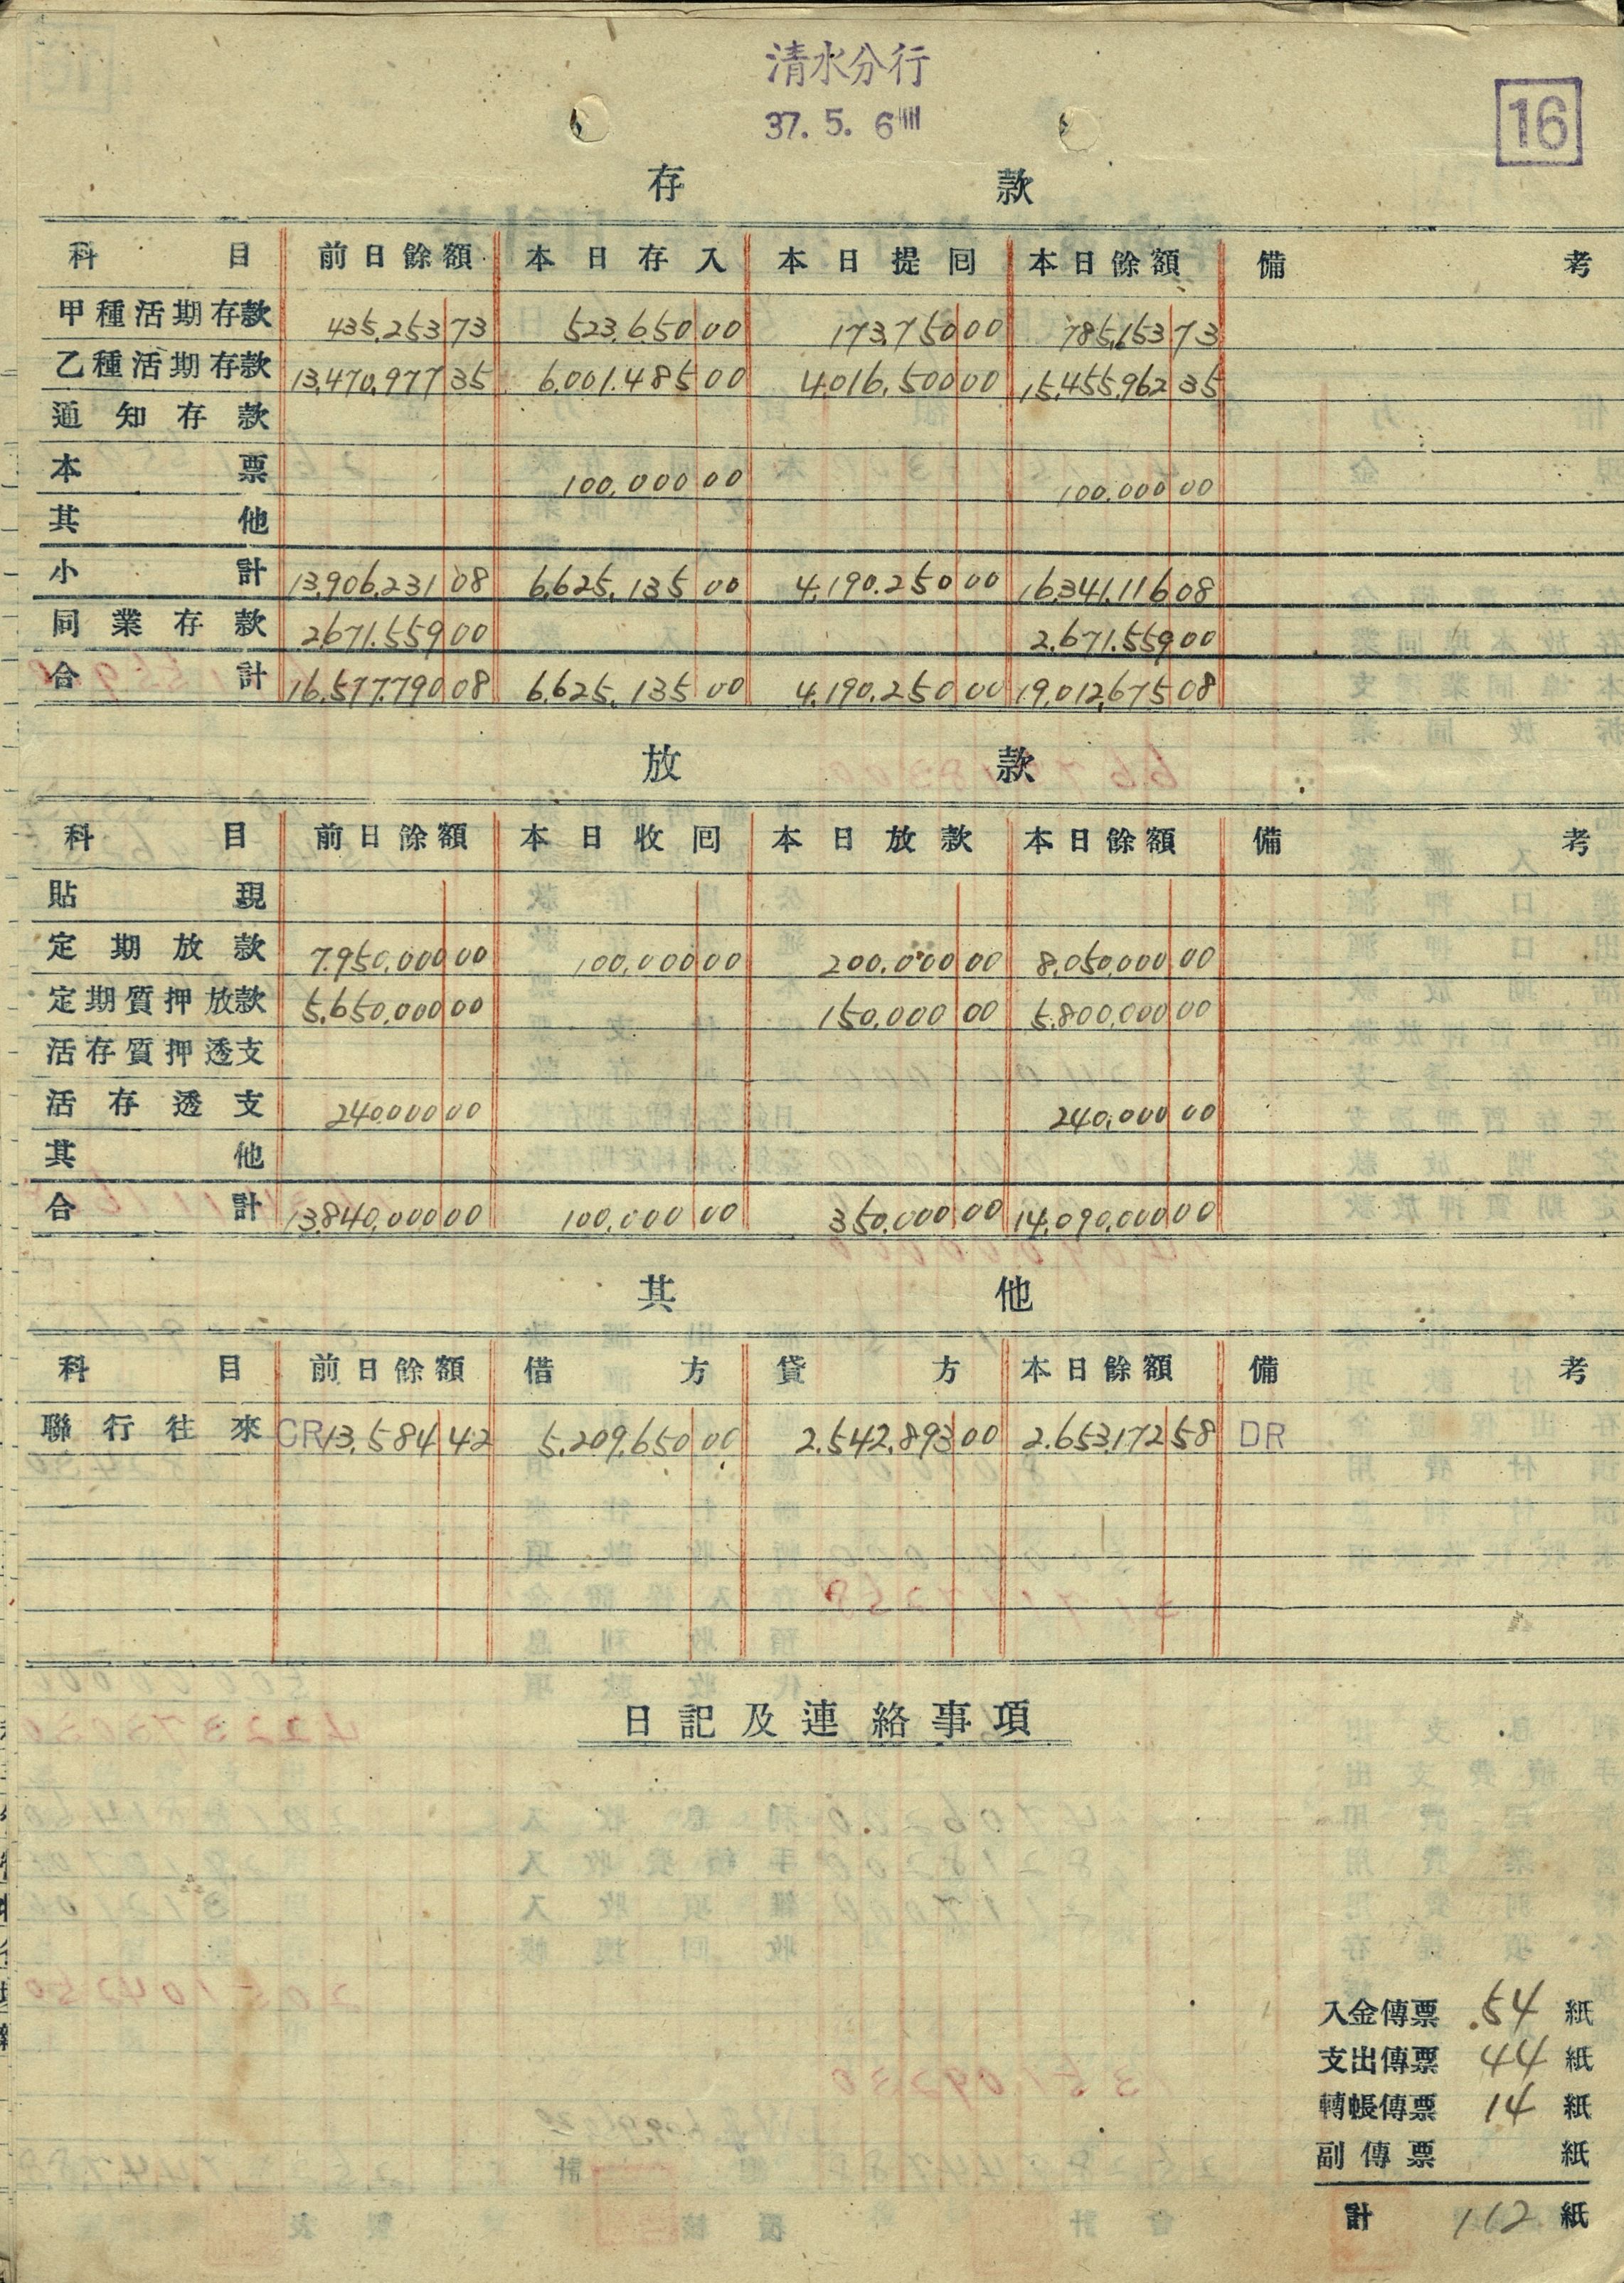 清水分行
37. 5. 6
16
存款
科目 前日餘額 本日存入 本日提回 本日餘額 備考
甲種活期存款 435,253 73 523,650 00 173,750 00 785,153 73
乙種活期存款 13,470,977 35 6,001,485 00 4,016,500 00 15,455,962 35
通知存款
本票 100,000 00 100,000 00
其他
小計 13,906,231 08 6,625,135 00 4,190,250 00 16,341,116 08
同業存款 2,671,559 00 2,671,559 00
合計 16,577,790 08 6,625,135 00 4,190,250 00 19,012,675 08
放款
科目 前日餘額 本日收回 本日放款 本日餘額 備考
貼現
定期放款 7,950,000 00 100,000 00 200,000 00 8,050,000 00
定期質押放款 5,650,000 00 150,000 00 5,800,000 00
活存質押透支
活存透支 240,000 00 240,000 00
其他
合計 13,840,000 00 100,000 00 350,000 00 14,090,000 00
其他
科目 前日餘額 借方 貸方 本日餘額 備考
聯行往來 CR 13,584 42 5,209,650 00 2,542,893 00 2,653,172 58 DR
日記及連絡事項
入金傳票 54 紙
支出傳票 44 紙
轉帳傳票 14 紙
副傳票 紙
計 112 紙